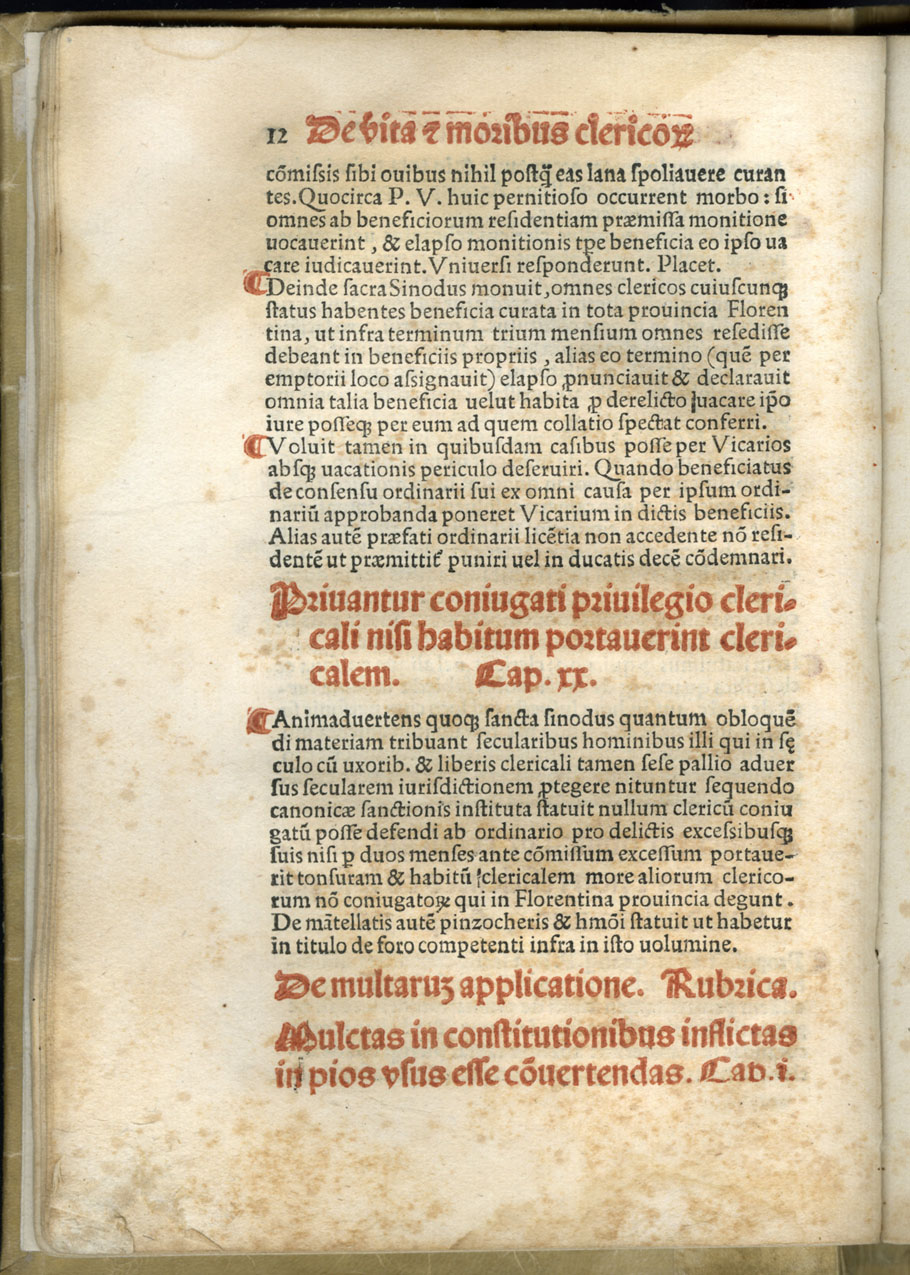 12 De vita ⁊ moribus clericoꝝ
cõmissis sibi ouibus nihil postq̃ eas lana spoliauere curan
tes. Quocirca P. V. huic pernitioso occurrent morbo: si
omnes ab beneficiorum residentiam præmissa monitione
uocauerint, & elapso monitionis tpe beneficia eo ipso ua
care iudicauerint. Vniuersi responderunt. Placet.
¶ Deinde sacra Sinodus monuit, omnes clericos cuiuscunqꝫ
status habentes beneficia curata in tota prouincia Floren
tina, ut infra terminum trium mensium omnes resedisse
debeant in beneficiis propriis, alias eo termino (quẽ per
emptorii loco assignauit) elapso ꝓnunciauit & declarauit
omnia talia beneficia uelut habita ꝓ derelicto uacare ip̃o
iure posseqꝫ per eum ad quem collatio spectat conferri.
¶ Voluit tamen in quibusdam casibus posse per Vicarios
absqꝫ uacationis periculo deseruiri. Quando beneficiatus
de consensu ordinarii sui ex omni causa per ipsum ordi-
nariũ approbanda poneret Vicarium in dictis beneficiis.
Alias autẽ præfati ordinarii licẽtia non accedente nõ resi-
dentẽ ut præmittit᷑ puniri uel in ducatis decẽ cõdemnari.
Priuantur coniugati priuilegio cleri-
cali nisi habitum portauerint cleri-
calem. Cap. xx.
¶ Animaduertens quoqꝫ sancta sinodus quantum obloquẽ
di materiam tribuant secularibus hominibus illi qui in sę
culo cũ uxorib. & liberis clericali tamen sese pallio aduer
sus secularem iurisdictionem ꝓtegere nituntur sequendo
canonicæ sanctionis instituta statuit nullum clericũ coniu
gatũ posse defendi ab ordinario pro delictis excessibusqꝫ
suis nisi ꝑ duos menses ante cõmissum excessum portaue-
rit tonsuram & habitũ clericalem more aliorum clerico-
rum nõ coniugatoꝝ qui in Florentina prouincia degunt.
De mãtellatis autẽ pinzocheris & hmõi statuit ut habetur
in titulo de foro competenti infra in isto uolumine.
De multaruꝫ applicatione. Rubrica.
Mulctas in constitutionibus inflictas
in pios vsus esse cõuertendas. Cap. i.